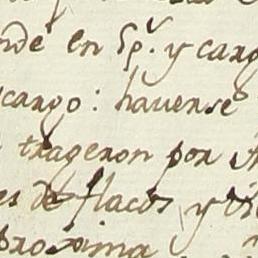 nde en Sp.r y carg
cargo: havense
trageron por A
es de flacos, y vi
proxima